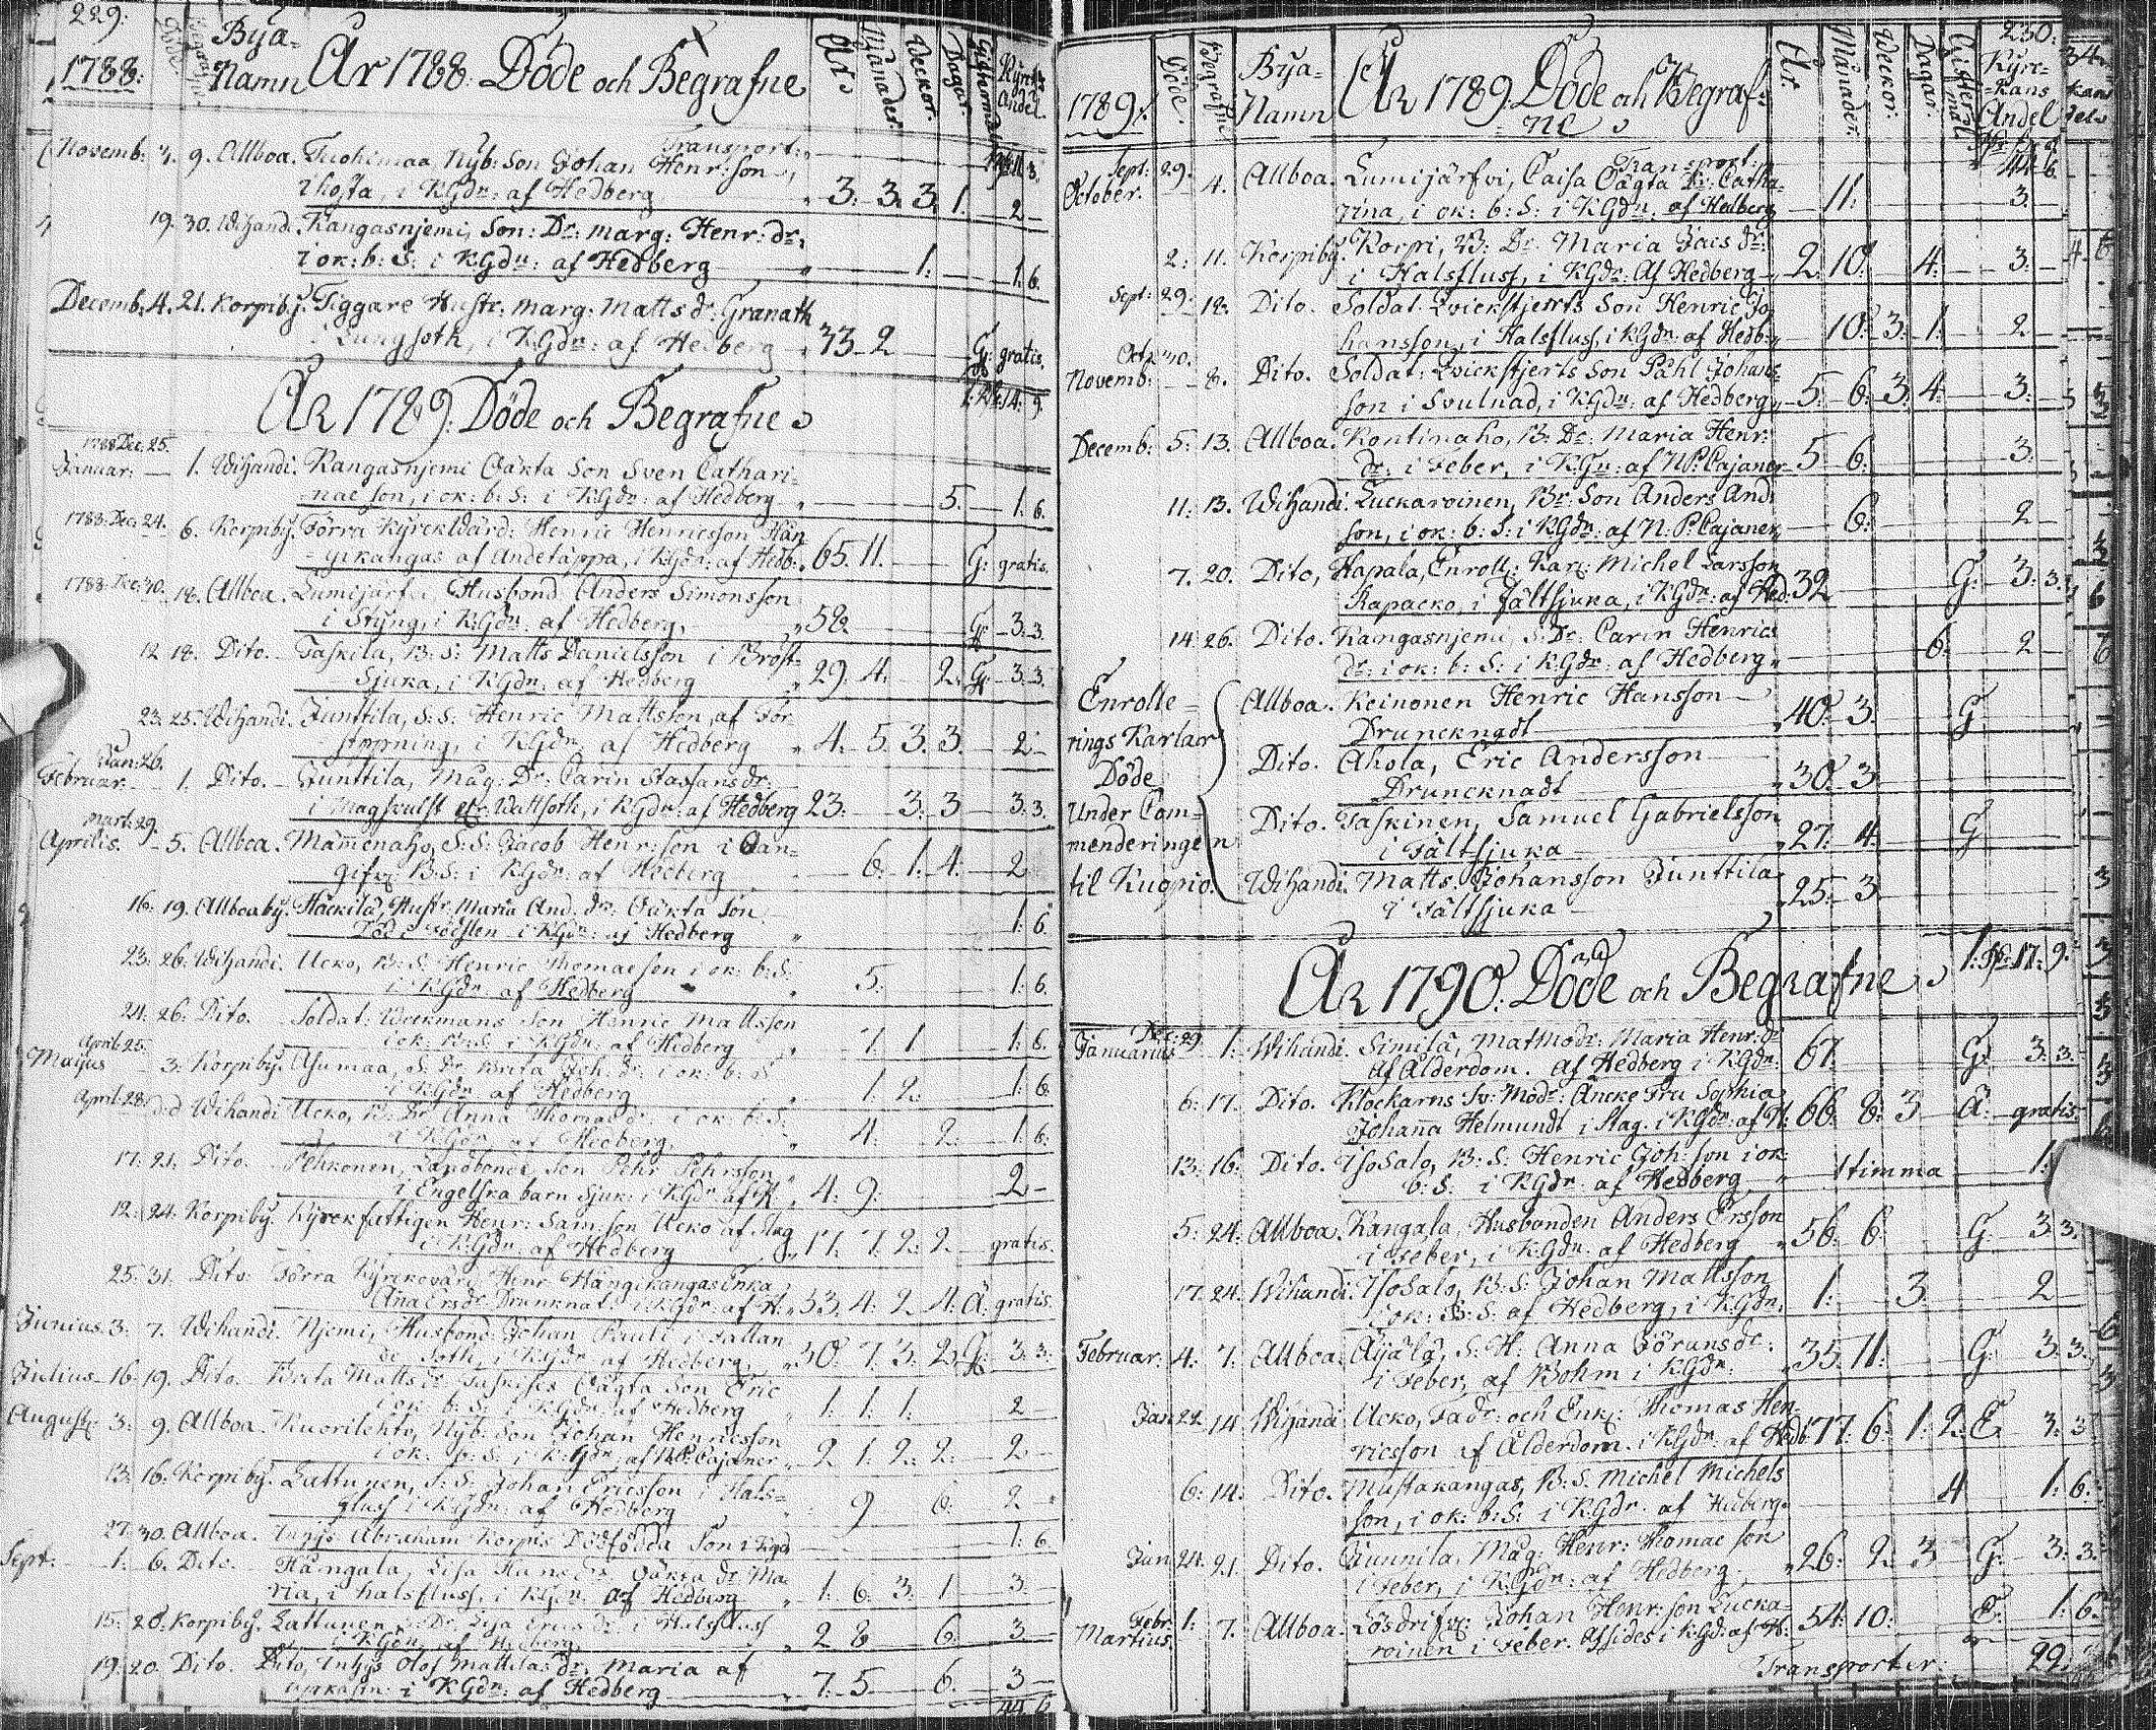 229.
1788.
Döde.
Begrafne.
Bya=
Namn
År 1788. Döde och Begrafne
År
Månader.
Veckor.
Dagar.
Kyrk:
Andel.
Transport:
Novemb: 4. 9. Allboa. Tuohimaa, Nyb: Son Johan Henr:son,
i hosta, i KGdn: af Hedberg 3. 3. 3. 1. 2
19. 30. Wihandi. Kangasnjemi, Son: Dr: Marg: Henr: dr:
i ok: b: S: i KGdn: af Hedberg 1. 1. 6.
Decemb: 4. 21. Korpiby. Tiggare Hustr: Marg: Matts dr: Granath
i Lungsoth, i KGdn: af Hedberg 73. 2 G: gratis.
År 1789. Döde och Begrafne
1788 Dec: 25.
Januar: 1. Wihandi. Kangasnjemi Oäkta Son Sven Cathari=
nae son, i ok: b: S: i KGdn: af Hedberg 5. 1. 6.
1788. Dec: 24. 6. Korpiby. Förra Kyrckwärd: Henric Henricsson Hän
gikangas af Andetäppa, i KGdn: af Hedb: 65. 11. G: gratis.
1788. Dec: 30. 18. Allboa. Lumijärfvi Husbond: Anders Simonsson
i Styng, i KGdn: af Hedberg. 58. G: 3. 3.
12 18. Dito. Taskila, B: S: Matts Danielsson i Bröst=
Sjuka, i KGdn: af Hedberg 29. 4. 2. G: 3. 3.
23. 25. Wihandi. Junttila, S: S: Henric Mattsson, af För
stoppning, i KGdn: af Hedberg 4. 5. 3. 3. 2
Jan: 26.
Februar: 1. Dito. Junttila, Måg: Dr: Carin Staffans dr:
i Magsvulst et Wattsoth, i KGdn: af Hedberg 23. 3. 3 3. 3.
Mart: 29.
Aprilis. 5. Allboa. Mämenaho S: S: Jacob Henr: son i Oan=
gifv: B: S: i KGdn: af Hedberg 6. 1. 4. 2
16. 19. Allboaby. Häckilä, Hustr: Maria And: dr: Oäkta Son
Död i Födslen i KGdn: af Hedberg 1. 6.
23. 26. Wihandi. Ucko, B: S: Henric Thomaeson i ok: b: S:
i KGdn: af Hedberg 5. 1. 6.
24. 26. Dito. Soldat: Son Henric Mattsson
i ok: b: S: i KGdn: af Hedberg 7. 1 1. 6.
April 25.
Majus 3. Korpiby. S: dr: Brita Joh: dr: i ok: b: S:
i KGdn: af Hedberg 1. 2. 1. 6.
April. 28. Wihandi Ucko, B: Dr: Anna Thomae dr: i ok: b: S:
i KGdn: af Hedberg. 4. 2. 1. 6.
17. 21. Dito. Pehkonen, Landbonde, Son Pehr Pehrsson
i Engelska barn Sjuk: i KGdn: af H: 4. 9. 2
12. 24. Korpiby. Kyrckfattigen Henr: Sam: son Ucko af Slag
i KGdn: af Hedberg 17. 7. 2. 2. gratis.
25. 31. Dito. Förra Kyrckovärd: Henr: Hängikangas Enka
Ana Ers dr: Drunknat i KGdn: af H: 53. 4. 2 4. Ä: gratis.
Junius 3. 7. Wihandi. Njemi, Husbond: Johan Pauli i Fallan
de Soth, i KGdn: af Hedberg, 30. 7. 3. 2. G: 3. 3.
Julius 16. 19. Dito. Brita Matts dr: Oägta Son Eric
i ok: b: S: i KGdn: af Hedberg 1. 1. 1. 2
August: 3. 9. Allboa. Kuorilehto, Nyb: Son Johan Henricsson
i ok: b: S: i KGdn: af N.P. Cajaner 2 1. 2. 2. 2
13. 16. Korpiby. Lattunen, S: S: Johan Ericsson i Hals=
fluss i KGdn: af Hedberg 9 6. 2
27. 30. Allboa. Inhys Abraham Korpis Dödfödda Son i Kgd 1. 6
Sept: 1. 6. Dito. Hängala, Lisa Hans dr: Oäkta dr: Ma
ria, i halsfluss, i KGdn: af Hedberg 1. 6 3. 1 3.
15. 20. Korpiby. Lattunen S: Dr: Lisa Erics dr: i Halsfluss
i KGdn: af Hedberg. 2 8 6. 3.
19. 20. Dito. Dito, Inhys Olof Mattilas dr: Maria af
i KGdn: af Hedberg 7. 5 6. 3
44. 6
230.
1789.
Döde.
Begrafne
Bya=
Namn
År 1789. Döde och Begraf=
ne
År.
Månader.
Weckor.
Dagar.
Gifftermål
Kyrc=
kans
Andel
Transport:
44. 6.
Sept: 29.
October. 4. Allboa. Lumijärfvi, Caisa Oägta Dr: Catha=
rina, i ok: b: S: i KGdn: af Hedberg 11. 3.
2. 11. Korpiby. Korpi, B: Dr: Maria Jacs dr:
i Halsfluss, i KGdn: af Hedberg 2. 10. 4. 3.
Sept: 29. 18. Dito. Soldat. Qvickstjerts Son Henric Jo=
hansson, i Halsfluss, i KGdn: af Hedb: 10. 3. 1. 2
Octr: 30.
Novemb: 8. Dito. Soldat: Qvickstjerts Son Påhl Johans=
son i Svulnad, i KGdn: af Hedberg 5. 6. 3. 4. 3.
Decemb: 5. 13. Allboa. Kontinaho, B: Dr: Maria Henr:
dr: i Feber, i KGn: af N.P. Cajaner 5 6. 3.
11. 13. Wihandi. Luckaroinen, Br: Son Anders And:
son, i ok: b: S: i KGdn: af N: P: Cajaner 6. 2
7. 20. Dito, Hapala, Enroll: Karl: Michel Larsson
Kapacko, i Fältsjuka, i KGdn: af Hed: 32 G: 3. 3.
14. 26. Dito. Kangasnjemi, S: Dr: Carin Henrics
dr: i ok: b: S: i KGdn: af Hedberg 6. 2
Enrolle=
rings Karlar
Döde
Under Com=
menderingen
til Kuopio.
Allboa. Keinonen Henric Hansson
Druncknadt 40. 3. G
Dito. Ahola, Eric Andersson
Druncknadt 30. 3
Dito. Taskinen, Samuel Gabrielsson
i Fältsjuka 27. 4. G
Wihandi. Matts Johansson Junttila
i Fältsjuka 25. 3
1. 17. 9.
År 1790. Döde och Begrafne
Dec: 29
Januarius 1. Wihandi. Similä, Matmodr: Maria Henr: dr
af Ålderdom. af Hedberg i KGdn: 67. G: 3. 3.
6. 17. Dito. Klockarns Sv: Modr: Äncke Fru Sophia
Johanna Helmundt i Slag. i KGdn: af H: 66. 8. 3 Ä: gratis
13. 16. Dito. Isosalo, B: S: Henric Joh: son i ok:
b: S. i KGdn: af Hedberg 1 timma 1.
5. 24. Allboa. Kangala, Husbonden Anders Ersson
i Feber, i KGdn: af Hedberg 56. 6. G: 3. 3.
17. 24. Wihandi. Isosalo, B: S: Johan Mattsson
i ok: B: S. af Hedberg, i KGdn. 1. 3. 2
Februar. 4. 7. Allboa. Äijälä, S: H: Anna Jörans dr:
i Feber, af Bohm i KGdn: 35. 11. G: 3. 3.
Jan: 22. 14. Wihandi Ucko, Fadr: och Enk: Thomas Hen=
ricsson af Ålderdom. i KGdn: af Hedb: 77. 6. 1. 2. E. 3. 3
6. 14. Dito. Mustakangas, B: S. Michel Michels
son, i ok: b: S: i KGdn: af Hedberg. 4 1. 6.
Jan 24. 21. Dito. Junnila, Måg: Henr: Thomae son
i Feber, i KGdn: af Hedberg. 26. 2. 3 G: 3. 3.
Febr: 1.
Martius. 7. Allboa. Lösdrifv: Johan Henr: son Lucka=
roinen i Feber. Afsides i KGd: af H: 54. 10. E. 1. 6.
Transporter: 29.